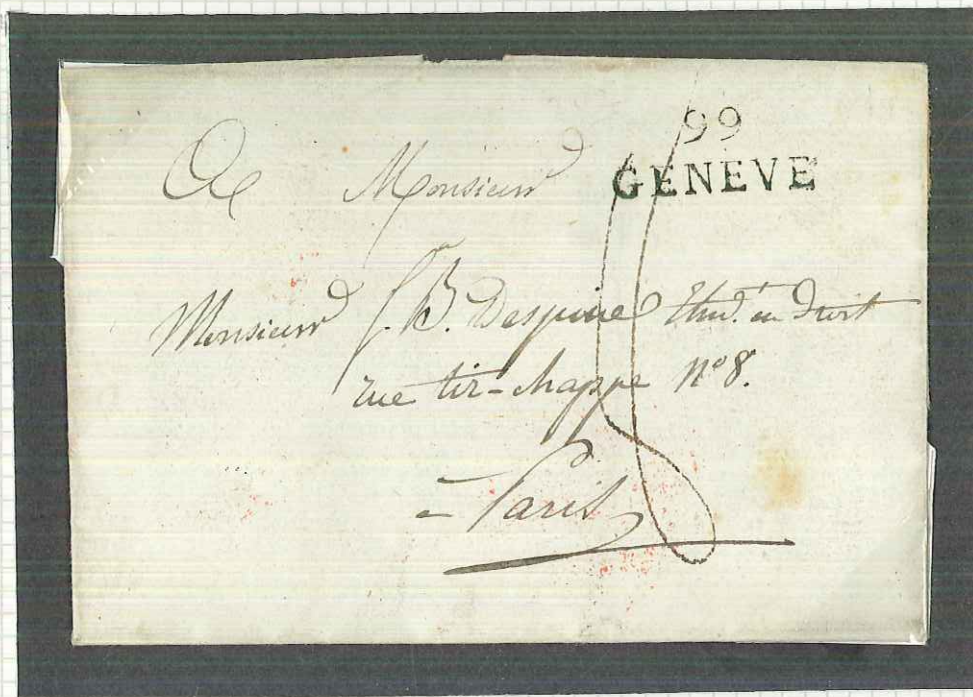 99
GENEVE
A Monsieur
Monsieur J. B. Despine Etud.t en Droit
rue tir-chappe N° 8.
= Paris